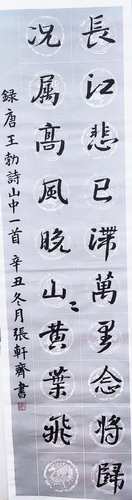 長江悲已滞萬里念將歸
况属高風晚山〻黄葉飛
録唐王勃詩山中一首 辛丑冬月張軒齊書